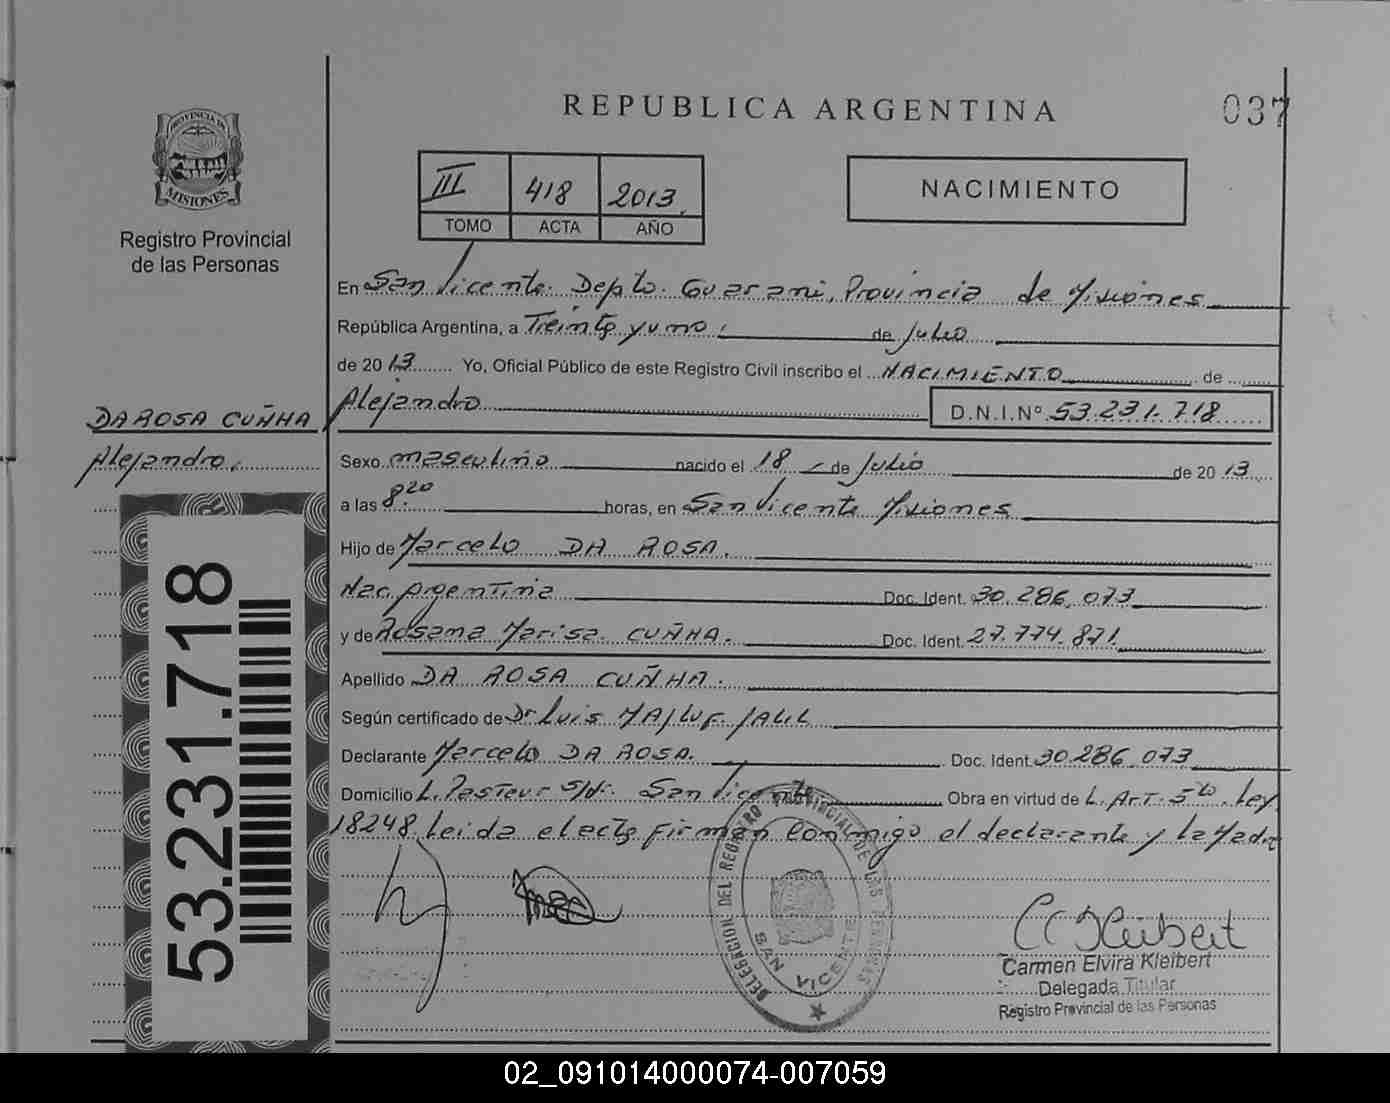 REPUBLICA ARGENTINA
037
PROVINCIA DE
MISIONES
Registro Provincial
de las Personas
III 418 2013
TOMO ACTA AÑO
NACIMIENTO
En San Vicente Depto. Guarani, Provincia de Misiones
República Argentina, a Treinta y uno de Julio
de 2013 Yo, Oficial Público de este Registro Civil inscribo el NACIMIENTO de
Alejandro D.N.I.Nº 53.231.718
DA ROSA CUÑHA
Alejandro
Sexo masculino nacido el 18 de Julio de 2013
a las 8:20 horas, en San Vicente Misiones
Hijo de Marcelo DA ROSA.
Nac. Argentina Doc. Ident. 30.286.073
y de Rosana Marisa CUÑHA. Doc. Ident. 27.774.871
Apellido DA ROSA CUÑHA.
Según certificado de Dr Luis MAJLUF JALIL
Declarante Marcelo DA ROSA. Doc. Ident. 30.286.073
Domicilio L. Pasteur S/Nº. San Vicente Obra en virtud de L. Art. 5to. Ley
18248 Leida el acta firman conmigo el declarante y la Madre
53.231.718
DELEGACION DEL REGISTRO PROVINCIAL DE LAS PERSONAS
SAN VICENTE
Carmen Elvira Kleibert
Delegada Titular
Registro Provincial de las Personas
02_091014000074-007059